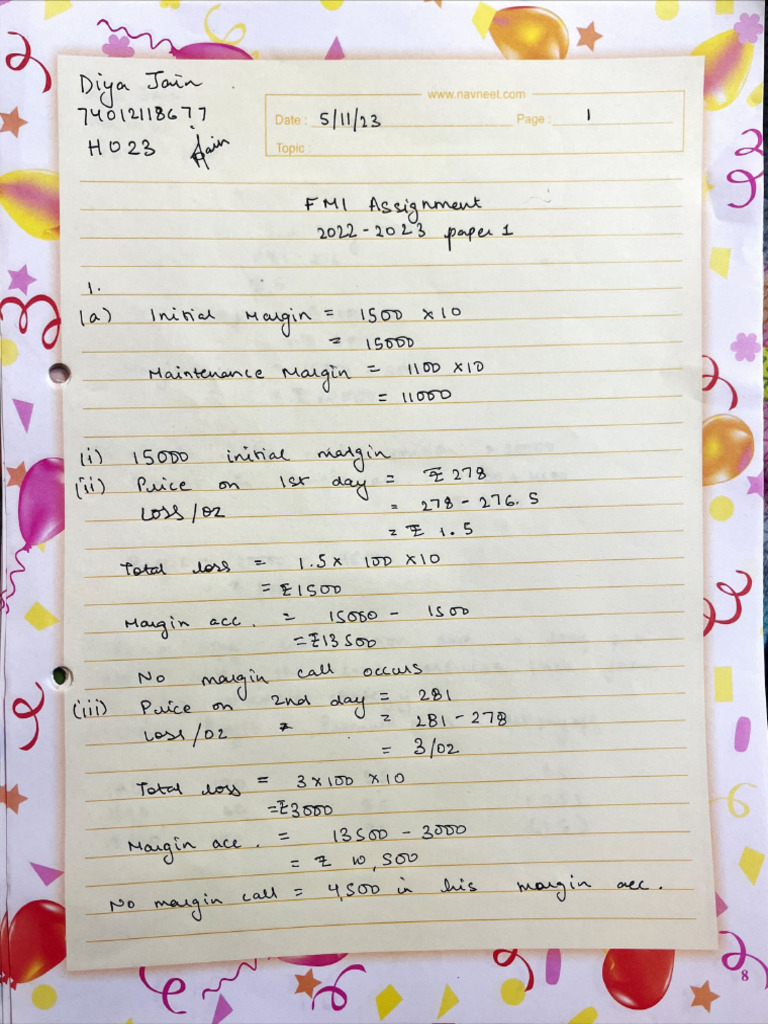 Diya Jain
74012118677
HO23 Jain
www.navneet.com
Date : 5/11/23 Page : 1
Topic :
FMI Assignment
2022-2023 paper 1
1.
(a) Initial Margin = 1500 x 10
= 15000
Maintenance Margin = 1100 x 10
= 11000
(i) 15000 initial margin
(ii) Price on 1st day = ₹ 278
Loss/oz = 278 - 276.5
= ₹ 1.5
Total loss = 1.5 x 100 x 10
= ₹1500
Margin acc. = 15000 - 1500
= ₹13500
No margin call occurs
(iii) Price on 2nd day = 281
Loss/oz = 281 - 278
= 3/oz
Total loss = 3 x 100 x 10
= ₹3000
Margin acc. = 13500 - 3000
= ₹ 10,500
No margin call = 4,500 in his margin acc.
8